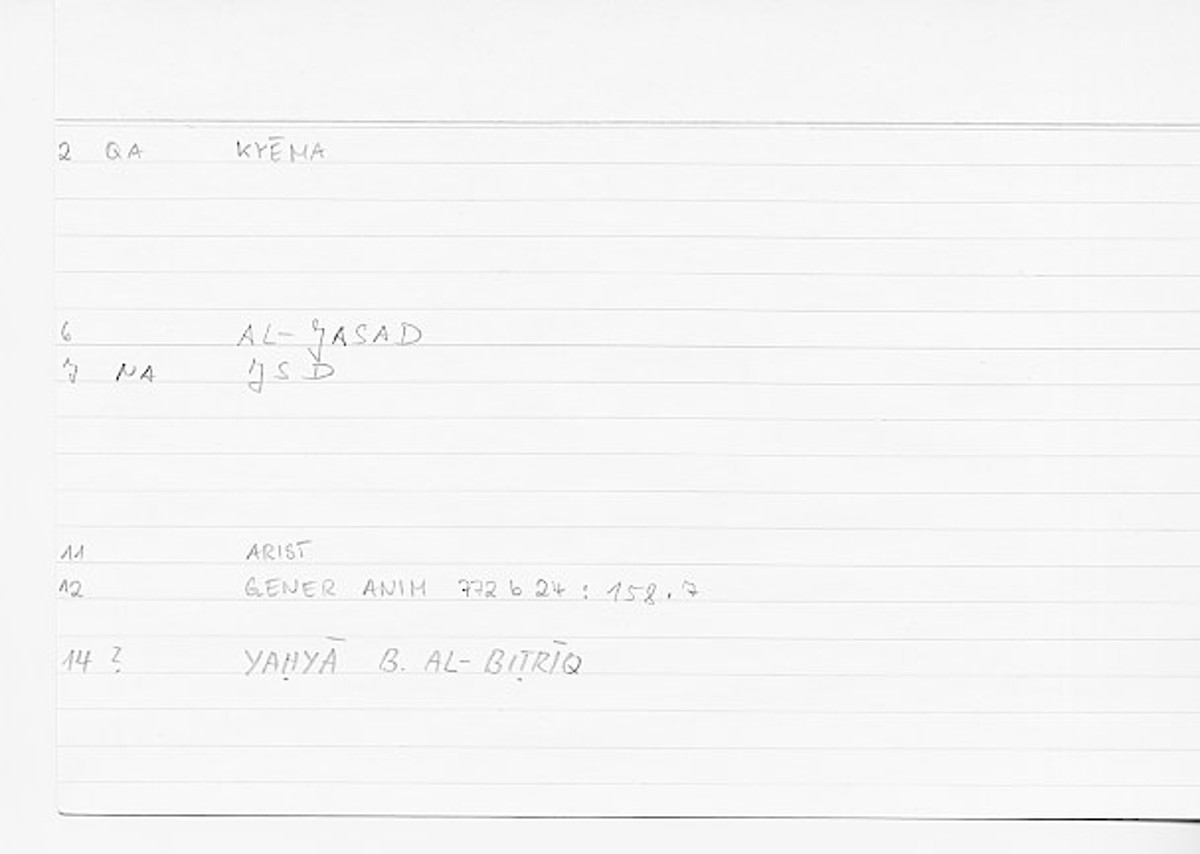 2 QA KYĒMA
6 AL- JASAD
7 NA JSD
11 ARIST
12 GENER ANIM 772 b 24 : 158.7
14 ? YAḤYĀ B. AL-BIṬRĪQ